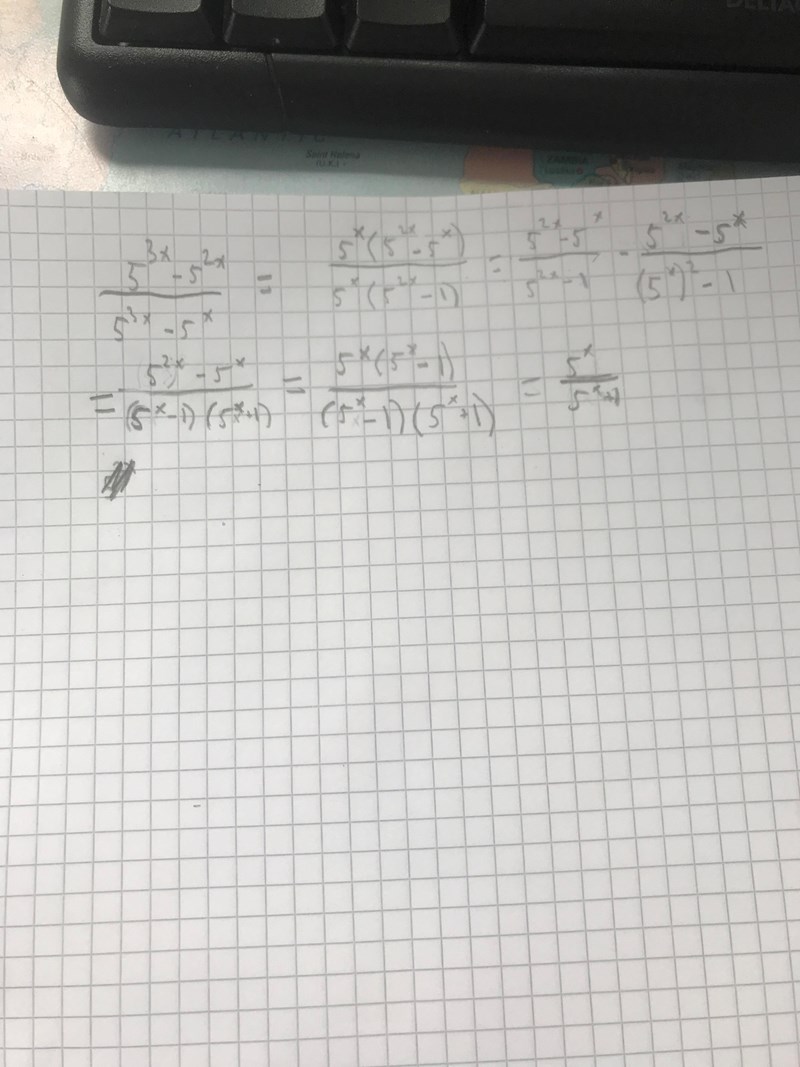 DELTAC
ATLANTIC
Saint Helena
(U.K.)
5^{3x} - 5^{2x} / 5^{3x} - 5^x = 5^x(5^{2x} - 5^x) / 5^x(5^{2x} - 1) = 5^{2x} - 5^x / 5^{2x} - 1 - 5^{2x} - 5^x / (5^x)^2 - 1
= 5^{2x} - 5^x / (5^x - 1)(5^x + 1) = 5^x(5^x - 1) / (5^x - 1)(5^x + 1) = 5^x / 5^x + 1